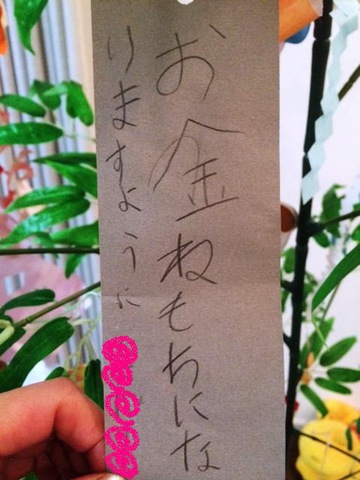 お金ねもちにな
りますように